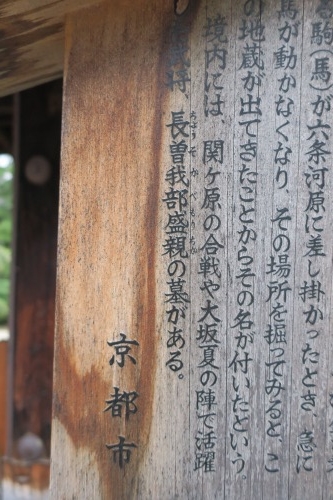 駒(馬)が六条河原に差し掛かったとき、急に
馬が動かなくなり、その場所を掘ってみると、こ
の地蔵が出てきたことからその名が付いたという。
境内には、関ヶ原の合戦や大坂夏の陣で活躍
し 武将 長曽我部盛親の墓がある。
京都市